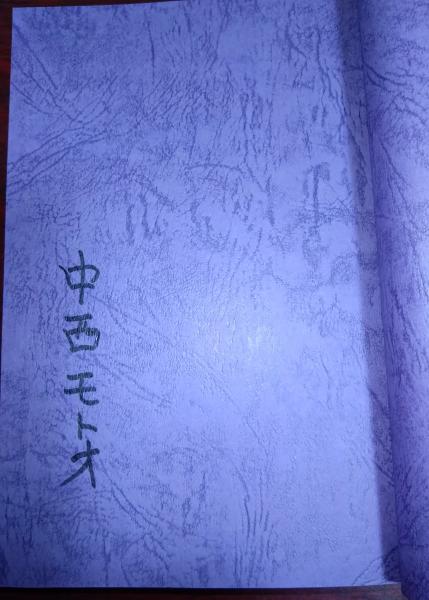 中西モトオ